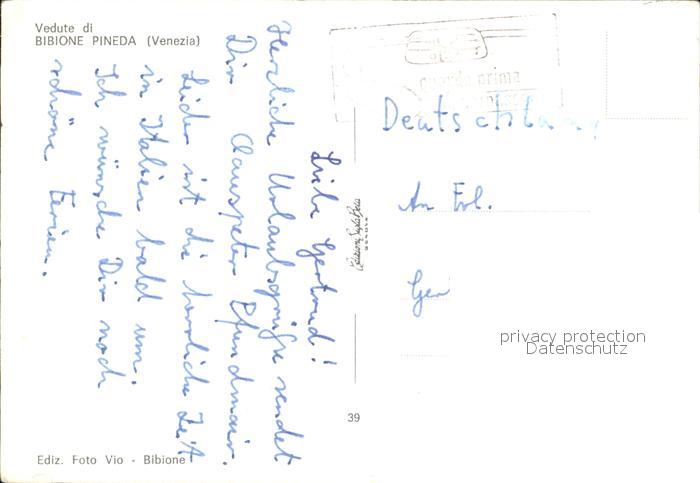 Vedute di
BIBIONE PINEDA (Venezia)
Liebe Gertrud!
Herzliche Urlaubsgrüße sendet
Dir Clauspeter Pfundmair.
Leider ist die herrliche Zeit
in Italien bald um.
Ich wünsche Dir noch
schöne Ferien.
Deutschland
An Frl.
Ger
privacy protection
Datenschutz
39
Ediz. Foto Vio - Bibione